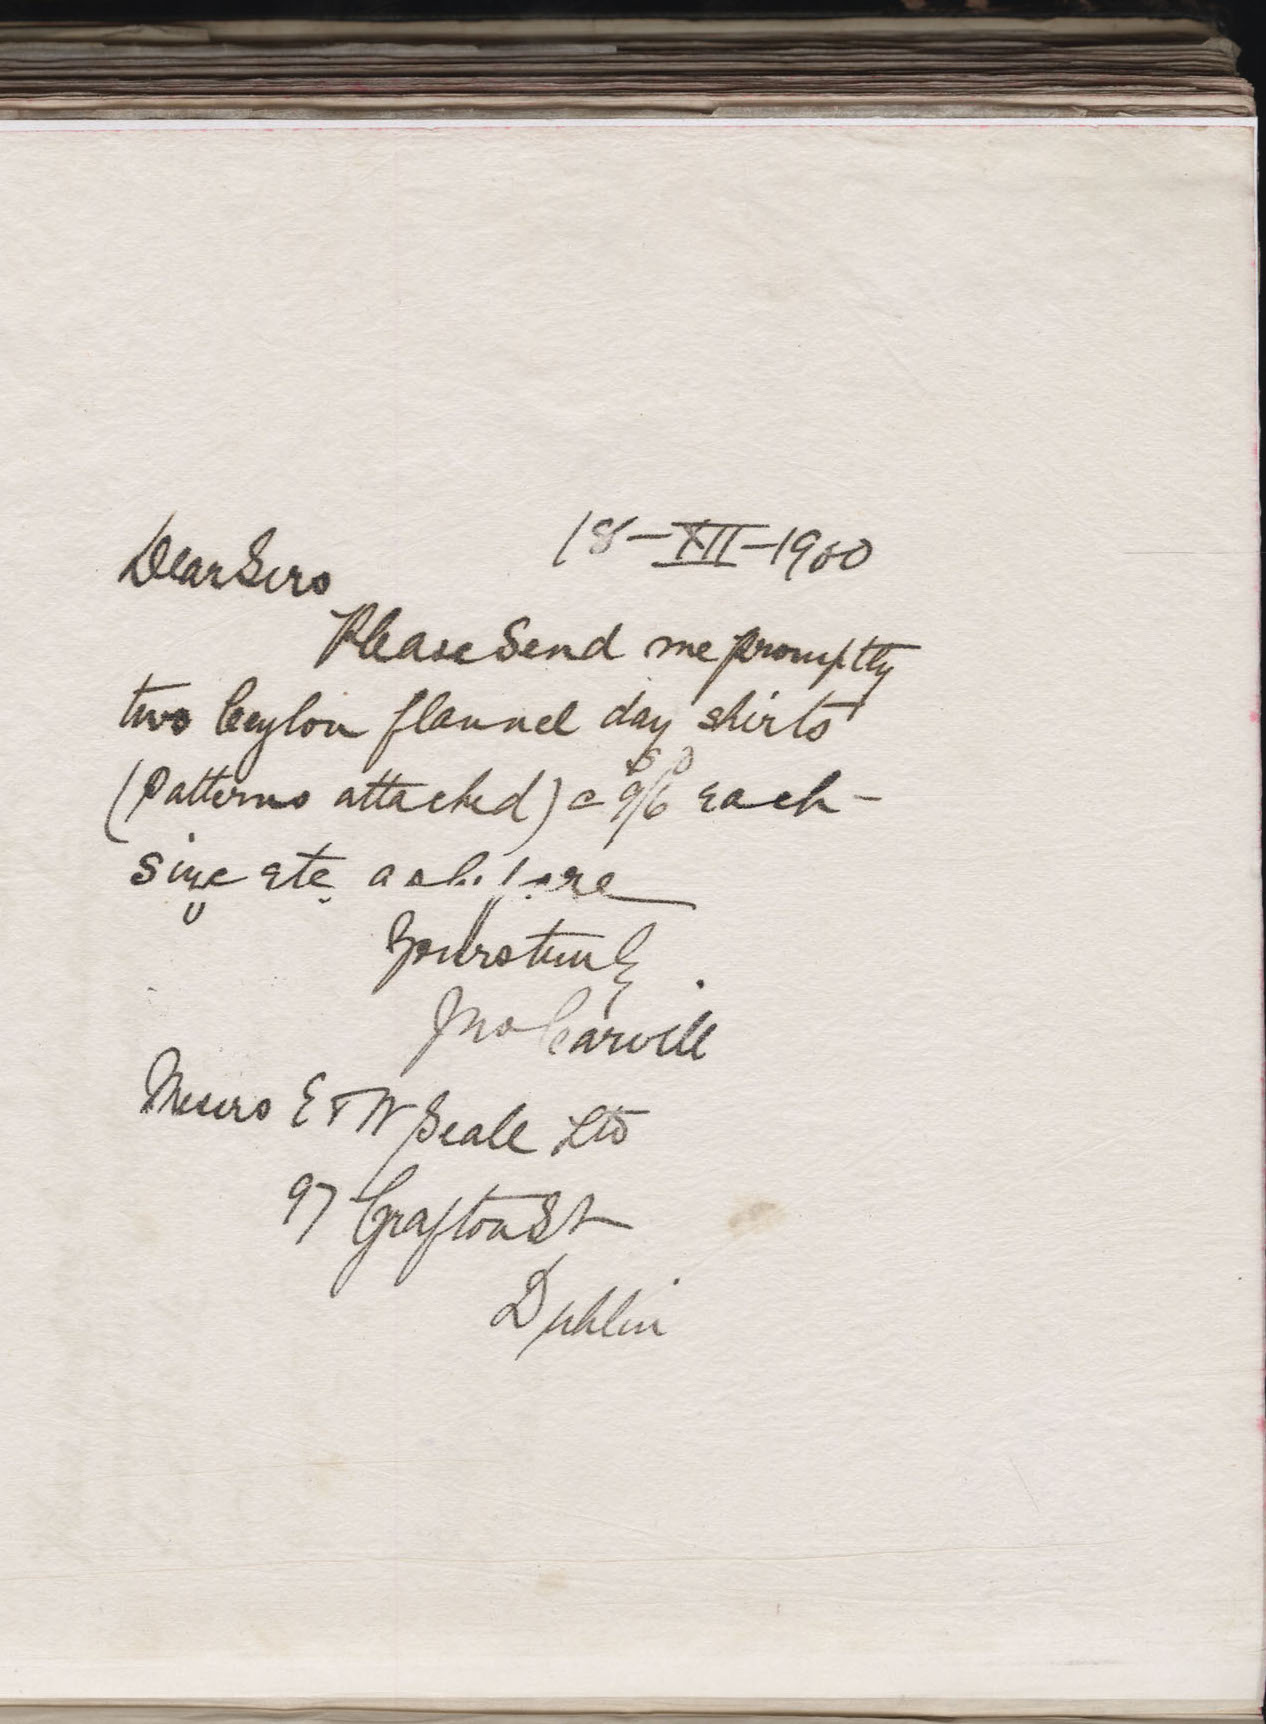 18-XII-1900
Dear Sirs
Please send me promptly
two Ceylon flannel day shirts
(Patterns attached) @ 9/6 each -
S D
size etc as before
Yours truly
Jno Carvill
Messrs E & W Seale Ltd
97 Grafton St
Dublin